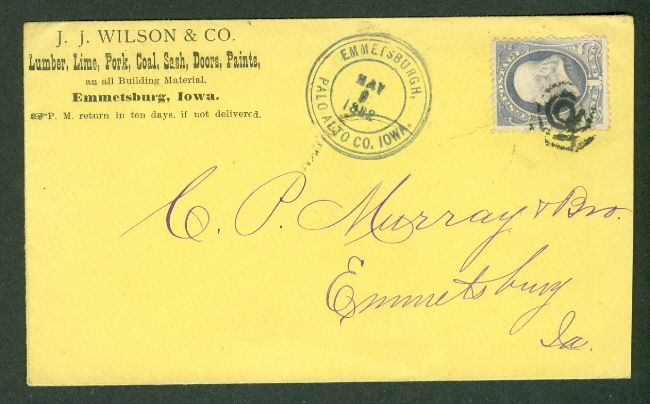 J. J. WILSON & CO.
Lumber, Lime, Pork, Coal, Sash, Doors, Paints,
an all Building Material.
Emmetsburg, Iowa.
☞P. M. return in ten days, if not delivered.
EMMETSBURGH,
MAY
1882
PALO ALTO CO. IOWA.
C. P. Murray & Bro.
Emmetsburg
Ia.